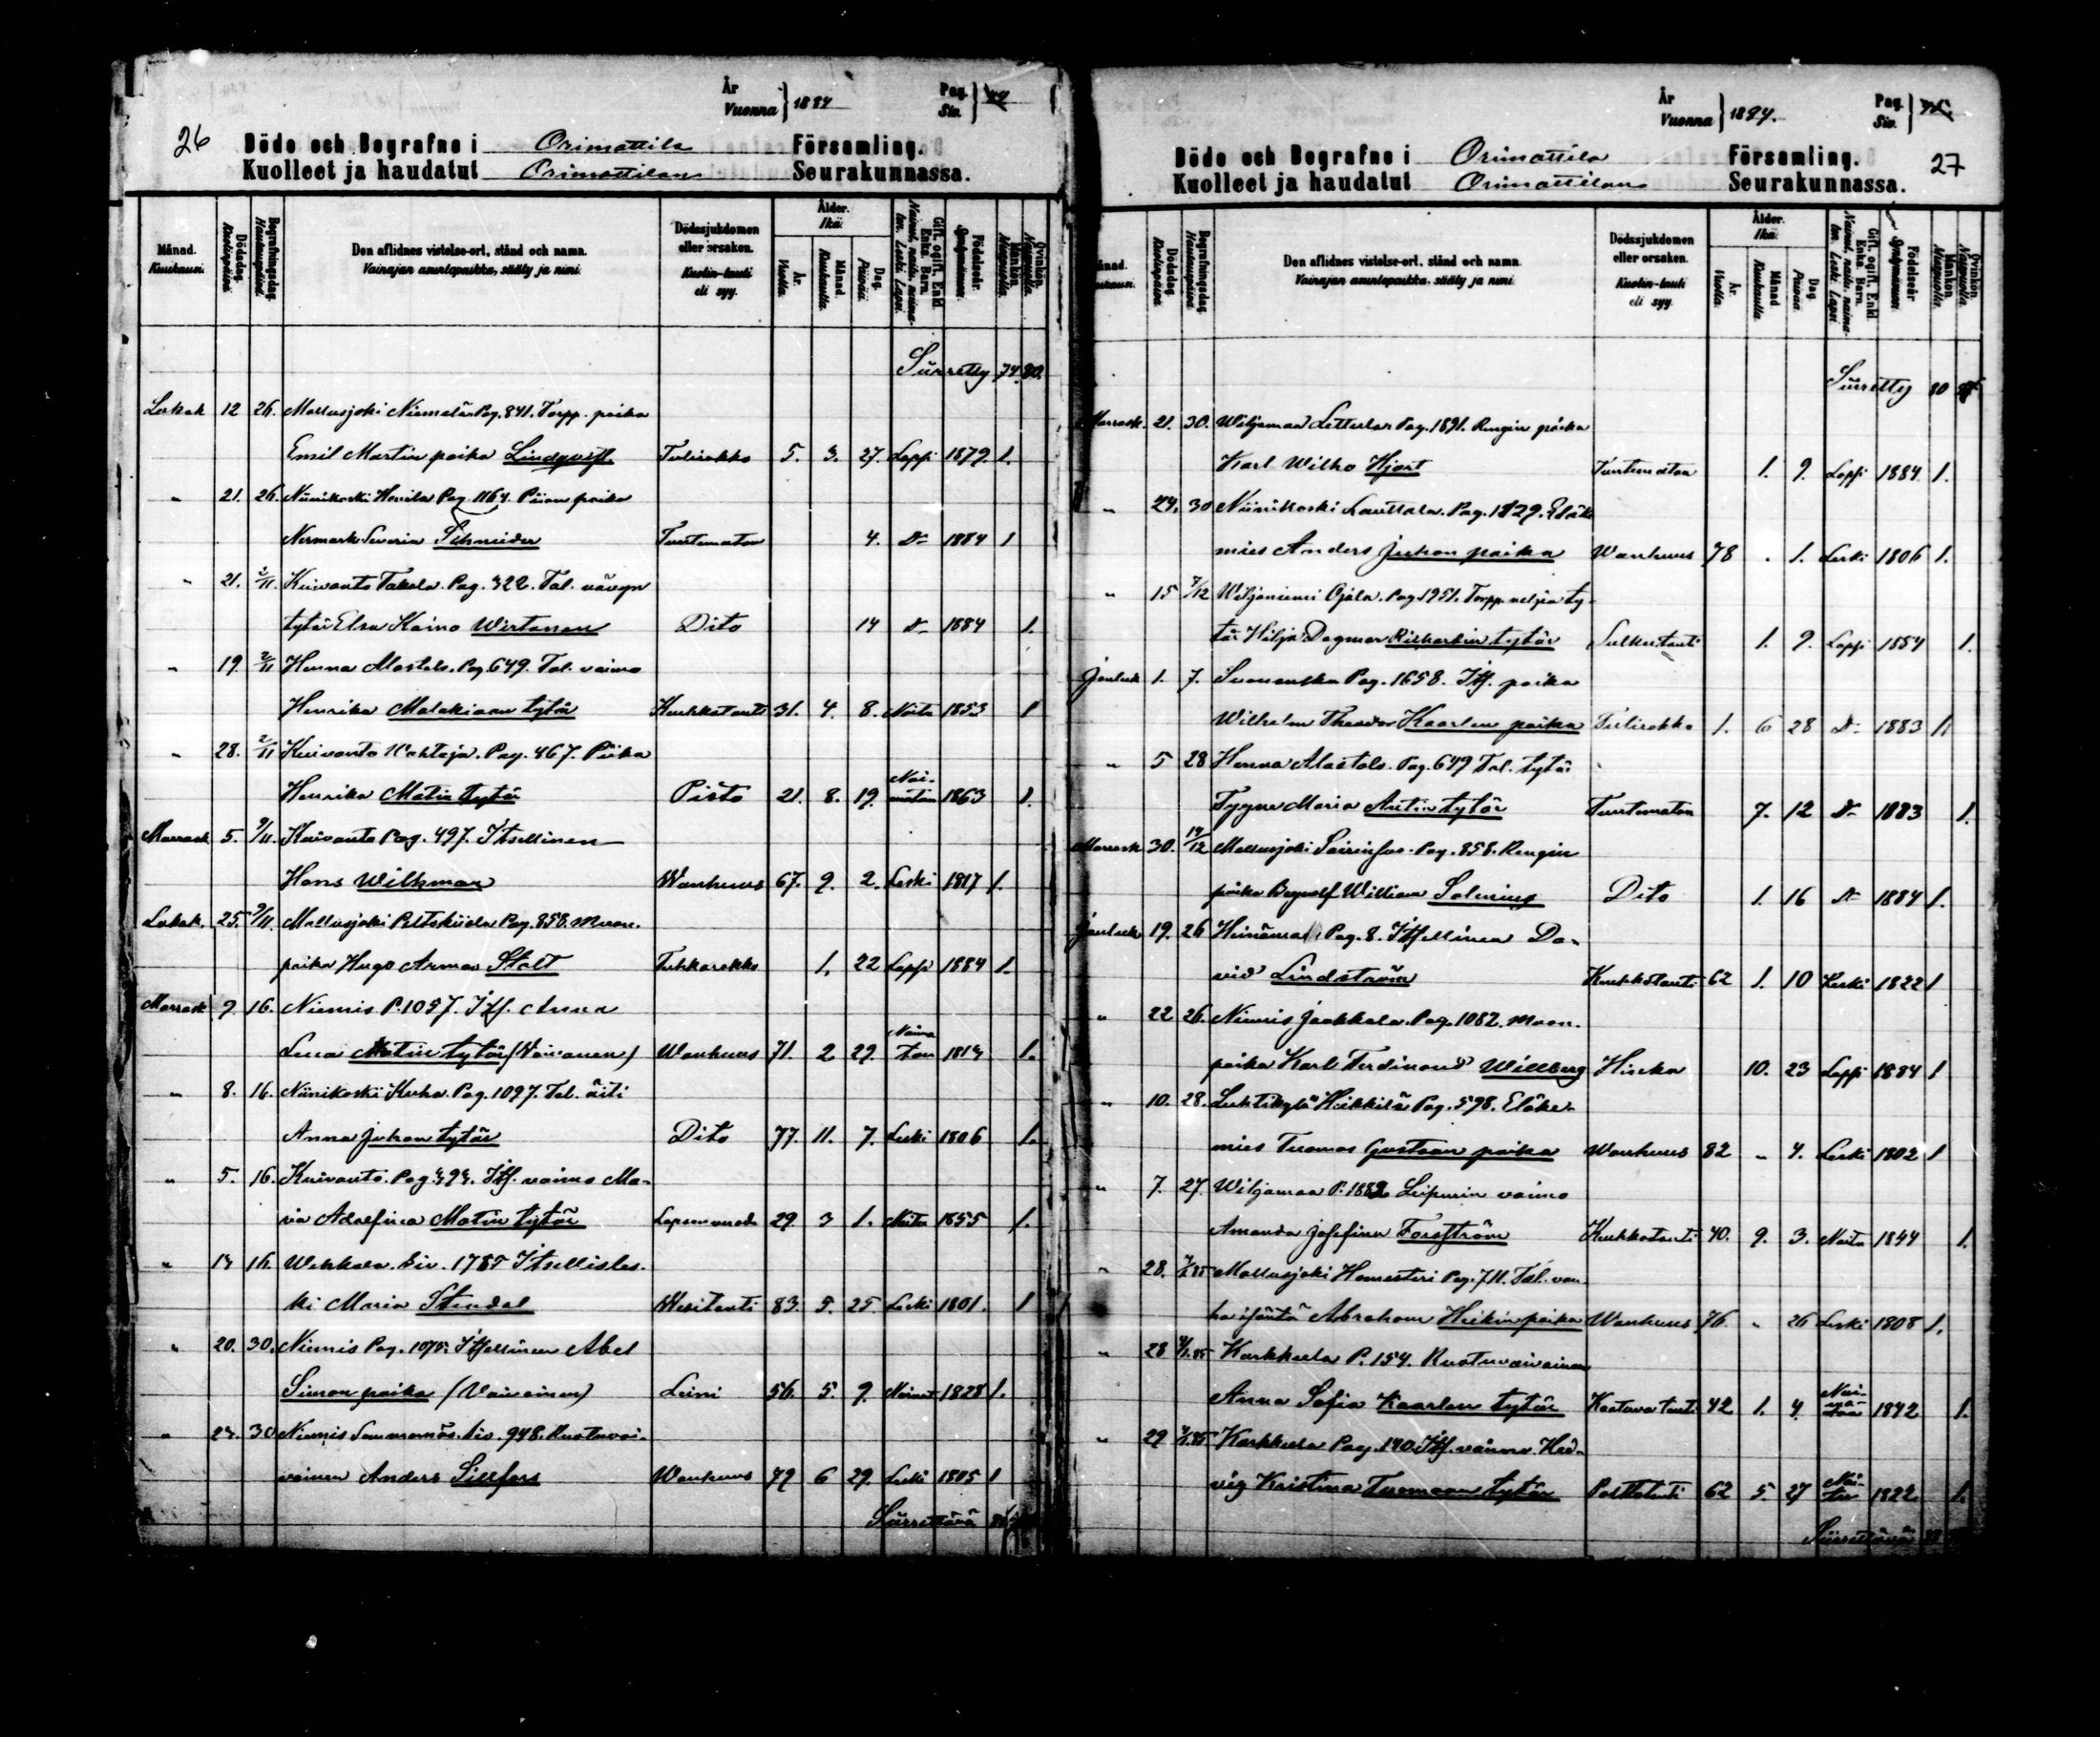 År
Vuonna } 1884
Pag.
Siv.
26
Döde och Begrafne i Orimattila Församling.
Kuolleet ja haudatut Orimattilan Seurakunnassa.
Månad. Kuukausi.
Dödsdag. Kuolinpäivä.
Begrafningsdag. Hautauspäivä.
Den aflidnes vistelse-ort, stånd och namn.
Vainajan asuntopaikka, sääty ja nimi.
Dödssjukdomen eller orsaken.
Kuolin-tauti eli syy.
Ålder. Ikä.
År. Vuotta.
Månad. Kuukautta.
Dag. Päivää.
Gift, ogift, Enkl. Enka, Barn.
Födelseår. Syntymävuosi.
Mankön. Miespuolia.
Qvinkön. Naispuolia.
Siirretty 74 80.
Lokak. 12 26. Mallusjoki Niemelä Pag. 841. Torpp. poika
Emil Martin poika Lindqvist. Tulirokko 5. 3. 27. Lapsi 1879. 1.
" 21. 26. Niinikoski Henila Pag. 1164. Piian poika
Severin Schneider Tuntematon 4. Do 1884 1
" 21. 2/11. Kuivanto Takala. Pag. 422. Tal. vävyn
tytär Elsa Kaino Wirtanen Dito 14 Do 1884 1.
" 19. 2/11 Henna Alastalo. Pag. 649. Tal. vaimo
Henrika Malakiaan tytär Keuhkotauti 31. 4. 8. Naitu 1853 1
" 28. 2/11 Kuivanto Uahtaja. Pag. 467. Piika
Henrika Matin tytär Dito 21. 8. 19. Naimaton 1863 1.
Marrask. 5. 9/11. Kuivanto Pag. 497. Itsellinen
Hans Wilkman Wanhuus 67. 9. 2. Leski 1817 1.
Lokak. 25. 9/11. Mallusjoki Peltokiida Pag. 858. Muon.
poika Hugo Armas Stolt Tuhkarokko 1. 22 Lapsi 1884 1.
Marrask. 9. 16. Niemis P. 1057. Its. Anna
Lena Matin tytär (Vaivanen) Wanhuus 71. 2 29. Naimaton 1813 1.
" 8. 16. Niinikoski Kuha. Pag. 1097. Tal. äiti
Anna Juhon tytär Dito 77. 11. 7. Leski 1806 1.
" 5. 16. Kuivanto. Pag. 494. Its. vaimo Ma-
ria Adolfina Matin tytär Lapsenvuode 29 3 1. Naitu 1855 1.
" 14 16. Wekkala. Siv. 1785 Itsellisles-
ki Maria Stendal Wesitauti 83. 5. 25. Leski 1801. 1
" 20. 30. Niemis Pag. 1075. Itsellinen Abel
Simon poika (Vaivainen) Leini 56. 5. 9. Nainut 1828 1.
" 24. 30 Niemis Siv. 948. Ruotuvai-
vainen Anders Sillfors Wanhuus 79 6 29. Leski 1805 1
Siirrettävä
År
Vuonna } 1884.
Pag.
Siv.
27
Döde och Begrafne i Orimattila Församling.
Kuolleet ja haudatut Orimattilan Seurakunnassa.
Den aflidnes vistelse-ort, stånd och namn.
Vainajan asuntopaikka, sääty ja nimi.
Dödssjukdomen eller orsaken.
Kuolin-tauti eli syy.
Ålder. Ikä.
Siirretty 80
Marrask. 21. 30. Wiljamaa Letterlar Pag. 1891. Rengin poika
Karl Wilho Hjort Tuntematon 1. 9. Lapsi 1884 1.
" 24. 30 Niinikoski Lauttala. Pag. 1129. Eläke
mies Anders Juhon poika Wanhuus 78 . 1. Leski 1806 1.
" 15 7/12 Wiljaniemi Ojala. Pag 1951. Torpp. neljän ty-
tär Hilja Dagmar Rikhardin tytär Sulkutauti 1. 9. Lapsi 1884 1.
Jouluk 1. 7. Suonenska Pag. 1658. Its. poika
Wilhelm Theodor Kaarlen poika Tulirokko 1. 6 28 Do 1883 1.
" 5 28 Henna Alastalo. Pag. 649 Tal. tytär
Tyyne Maria Antin tytär Tuntematon 7. 12 Do 1883 1.
Marrask 30. 14/12 Mallusjoki Pag. 858. Rengin
poika William Solming Dito 1. 16 Do 1884 1.
Jouluk 19. 26 Heinämaa Pag. 8. Itsellinen Da-
vid Lindström Keuhkotauti 62 1. 10 Leski 1822 1
" 22 26. Niemis Jaakkola. Pag. 1082. Muon.
poika Karl Ferdinand Willberg Hinka 10. 23 Lapsi 1884 1
" 10. 28. Luhtikylä Heikkilä Pag. 598. Eläke-
mies Tuomas Gustaan poika Wanhuus 82 " 4. Leski 1802 1
" 7. 27. Wiljamaa P. 1882 Leipurin vaimo
Amanda Josefina Forsström Keuhkotauti 40. 9. 3. Naitu 1844 1.
" 28. Mallusjoki Hemesteri Pag. 711. Tal. van-
ha isäntä Abraham Heikin poika Wanhuus 76. " 26 Leski 1808 1.
" 28 Karkkula P. 154. Ruotuvaivainen
Anna Sofia Kaarlen tytär Kaatuva tauti 42 1. 4. Naimaton 1842 1.
" 29 Karkkula Pag. 140. Its. vaimo Hed-
vig Kristina Tuomaan tytär Polttotauti 62 5. 27 Naitu 1822 1.
Siirrettävä